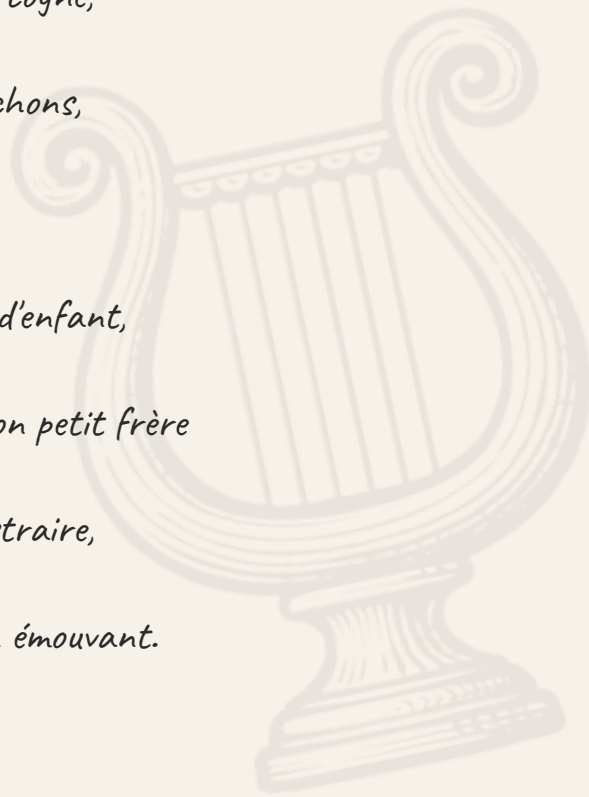 chons,
d'enfant,
on petit frère
traire,
émouvant.